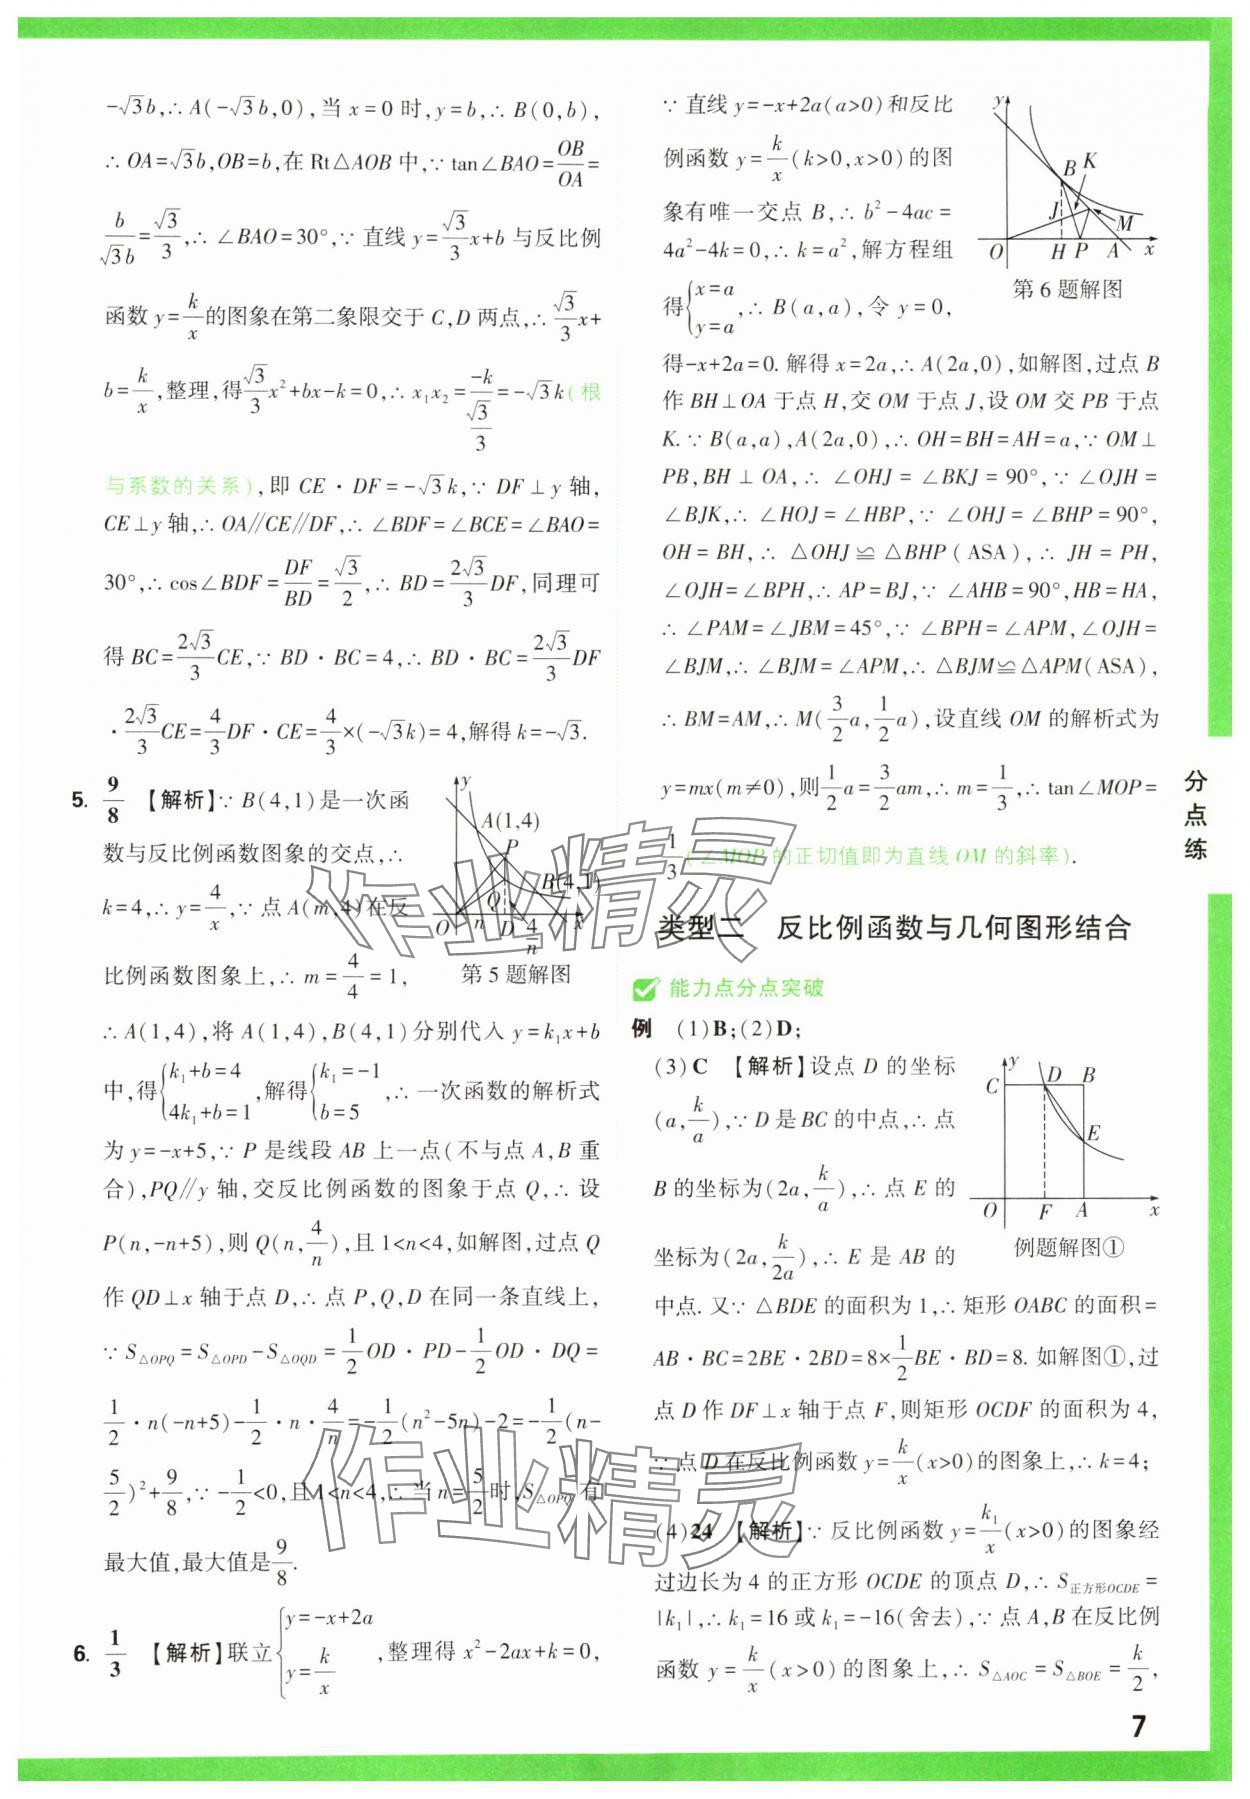 -√3b,∴A(-√3b,0),当x=0时,y=b,∴B(0,b),
∴OA=√3b,OB=b,在Rt△AOB中,∵tan∠BAO=OB/OA=
b/(√3b)=√3/3,∴∠BAO=30°,∵直线y=(√3/3)x+b与反比例
函数y=k/x的图象在第二象限交于C,D两点,∴(√3/3)x+
b=k/x,整理,得(√3/3)x²+bx-k=0,∴x₁x₂=-k/(√3/3)=-√3k(根
与系数的关系),即CE·DF=-√3k,∵DF⊥y轴,
CE⊥y轴,∴OA∥CE∥DF,∴∠BDF=∠BCE=∠BAO=
30°,∴cos∠BDF=DF/BD=√3/2,∴BD=(2√3/3)DF,同理可
得BC=(2√3/3)CE,∵BD·BC=4,∴BD·BC=(2√3/3)DF
·(2√3/3)CE=(4/3)DF·CE=(4/3)×(-√3k)=4,解得k=-√3.
5. 9/8 【解析】∵B(4,1)是一次函
数与反比例函数图象的交点,∴
k=4,∴y=4/x,∵点A(m,4)在反
比例函数图象上,∴m=4/4=1,
y
A(1,4)
P
B(4,1)
Q
O n D 4/n x
第5题解图
∴A(1,4),将A(1,4),B(4,1)分别代入y=k₁x+b
中,得{k₁+b=4 4k₁+b=1,解得{k₁=-1 b=5,∴一次函数的解析式
为y=-x+5,∵P是线段AB上一点(不与点A,B重
合),PQ∥y轴,交反比例函数的图象于点Q,∴设
P(n,-n+5),则Q(n,4/n),且1<n<4,如解图,过点Q
作QD⊥x轴于点D,∴点P,Q,D在同一条直线上,
∵S△OPQ=S△OPD-S△OQD=(1/2)OD·PD-(1/2)OD·DQ=
1/2·n(-n+5)-1/2·n·4/n=-(1/2)(n²-5n)-2=-(1/2)(n-
5/2)²+9/8,∵-1/2<0,且1<n<4,∴当n=5/2时,S△OPQ有
最大值,最大值是9/8.
6. 1/3 【解析】联立{y=-x+2a y=k/x,整理得x²-2ax+k=0,
∵直线y=-x+2a(a>0)和反比
例函数y=k/x(k>0,x>0)的图
象有唯一交点B,∴b²-4ac=
4a²-4k=0,∴k=a²,解方程组
得{x=a y=a,∴B(a,a),令y=0,
y
B K
J M
O H P A x
第6题解图
得-x+2a=0.解得x=2a,∴A(2a,0),如解图,过点B
作BH⊥OA于点H,交OM于点J,设OM交PB于点
K.∵B(a,a),A(2a,0),∴OH=BH=AH=a,∵OM⊥
PB,BH⊥OA,∴∠OHJ=∠BKJ=90°,∵∠OJH=
∠BJK,∴∠HOJ=∠HBP,∵∠OHJ=∠BHP=90°,
OH=BH,∴△OHJ≌△BHP(ASA),∴JH=PH,
∠OJH=∠BPH,∴AP=BJ,∵∠AHB=90°,HB=HA,
∴∠PAM=∠JBM=45°,∵∠BPH=∠APM,∠OJH=
∠BJM,∴∠BJM=∠APM,∴△BJM≌△APM(ASA),
∴BM=AM,∴M(3/2a,1/2a),设直线OM的解析式为
y=mx(m≠0),则(1/2)a=(3/2)am,∴m=1/3,∴tan∠MOP=
1/3(∠MOP的正切值即为直线OM的斜率).
类型二 反比例函数与几何图形结合
能力点分点突破
例 (1)B;(2)D;
(3)C 【解析】设点D的坐标
(a,k/a),∵D是BC的中点,∴点
B的坐标为(2a,k/a),∴点E的
坐标为(2a,k/2a),∴E是AB的
y
C D B
E
O F A x
例题解图①
中点.又∵△BDE的面积为1,∴矩形OABC的面积=
AB·BC=2BE·2BD=8×(1/2)BE·BD=8.如解图①,过
点D作DF⊥x轴于点F,则矩形OCDF的面积为4,
∵点D在反比例函数y=k/x(x>0)的图象上,∴k=4;
(4)24 【解析】∵反比例函数y=k₁/x(x>0)的图象经
过边长为4的正方形OCDE的顶点D,∴S正方形OCDE=
|k₁|,∴k₁=16或k₁=-16(舍去),∵点A,B在反比例
函数y=k/x(x>0)的图象上,∴S△AOC=S△BOE=k/2,
分点练
7
作业精灵
作业精灵